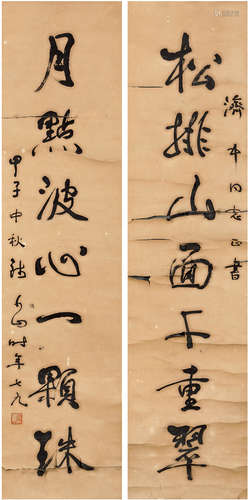 松排山面千重翠
濟本同志正書
月點波心一顆珠
甲子中秋
時年七九